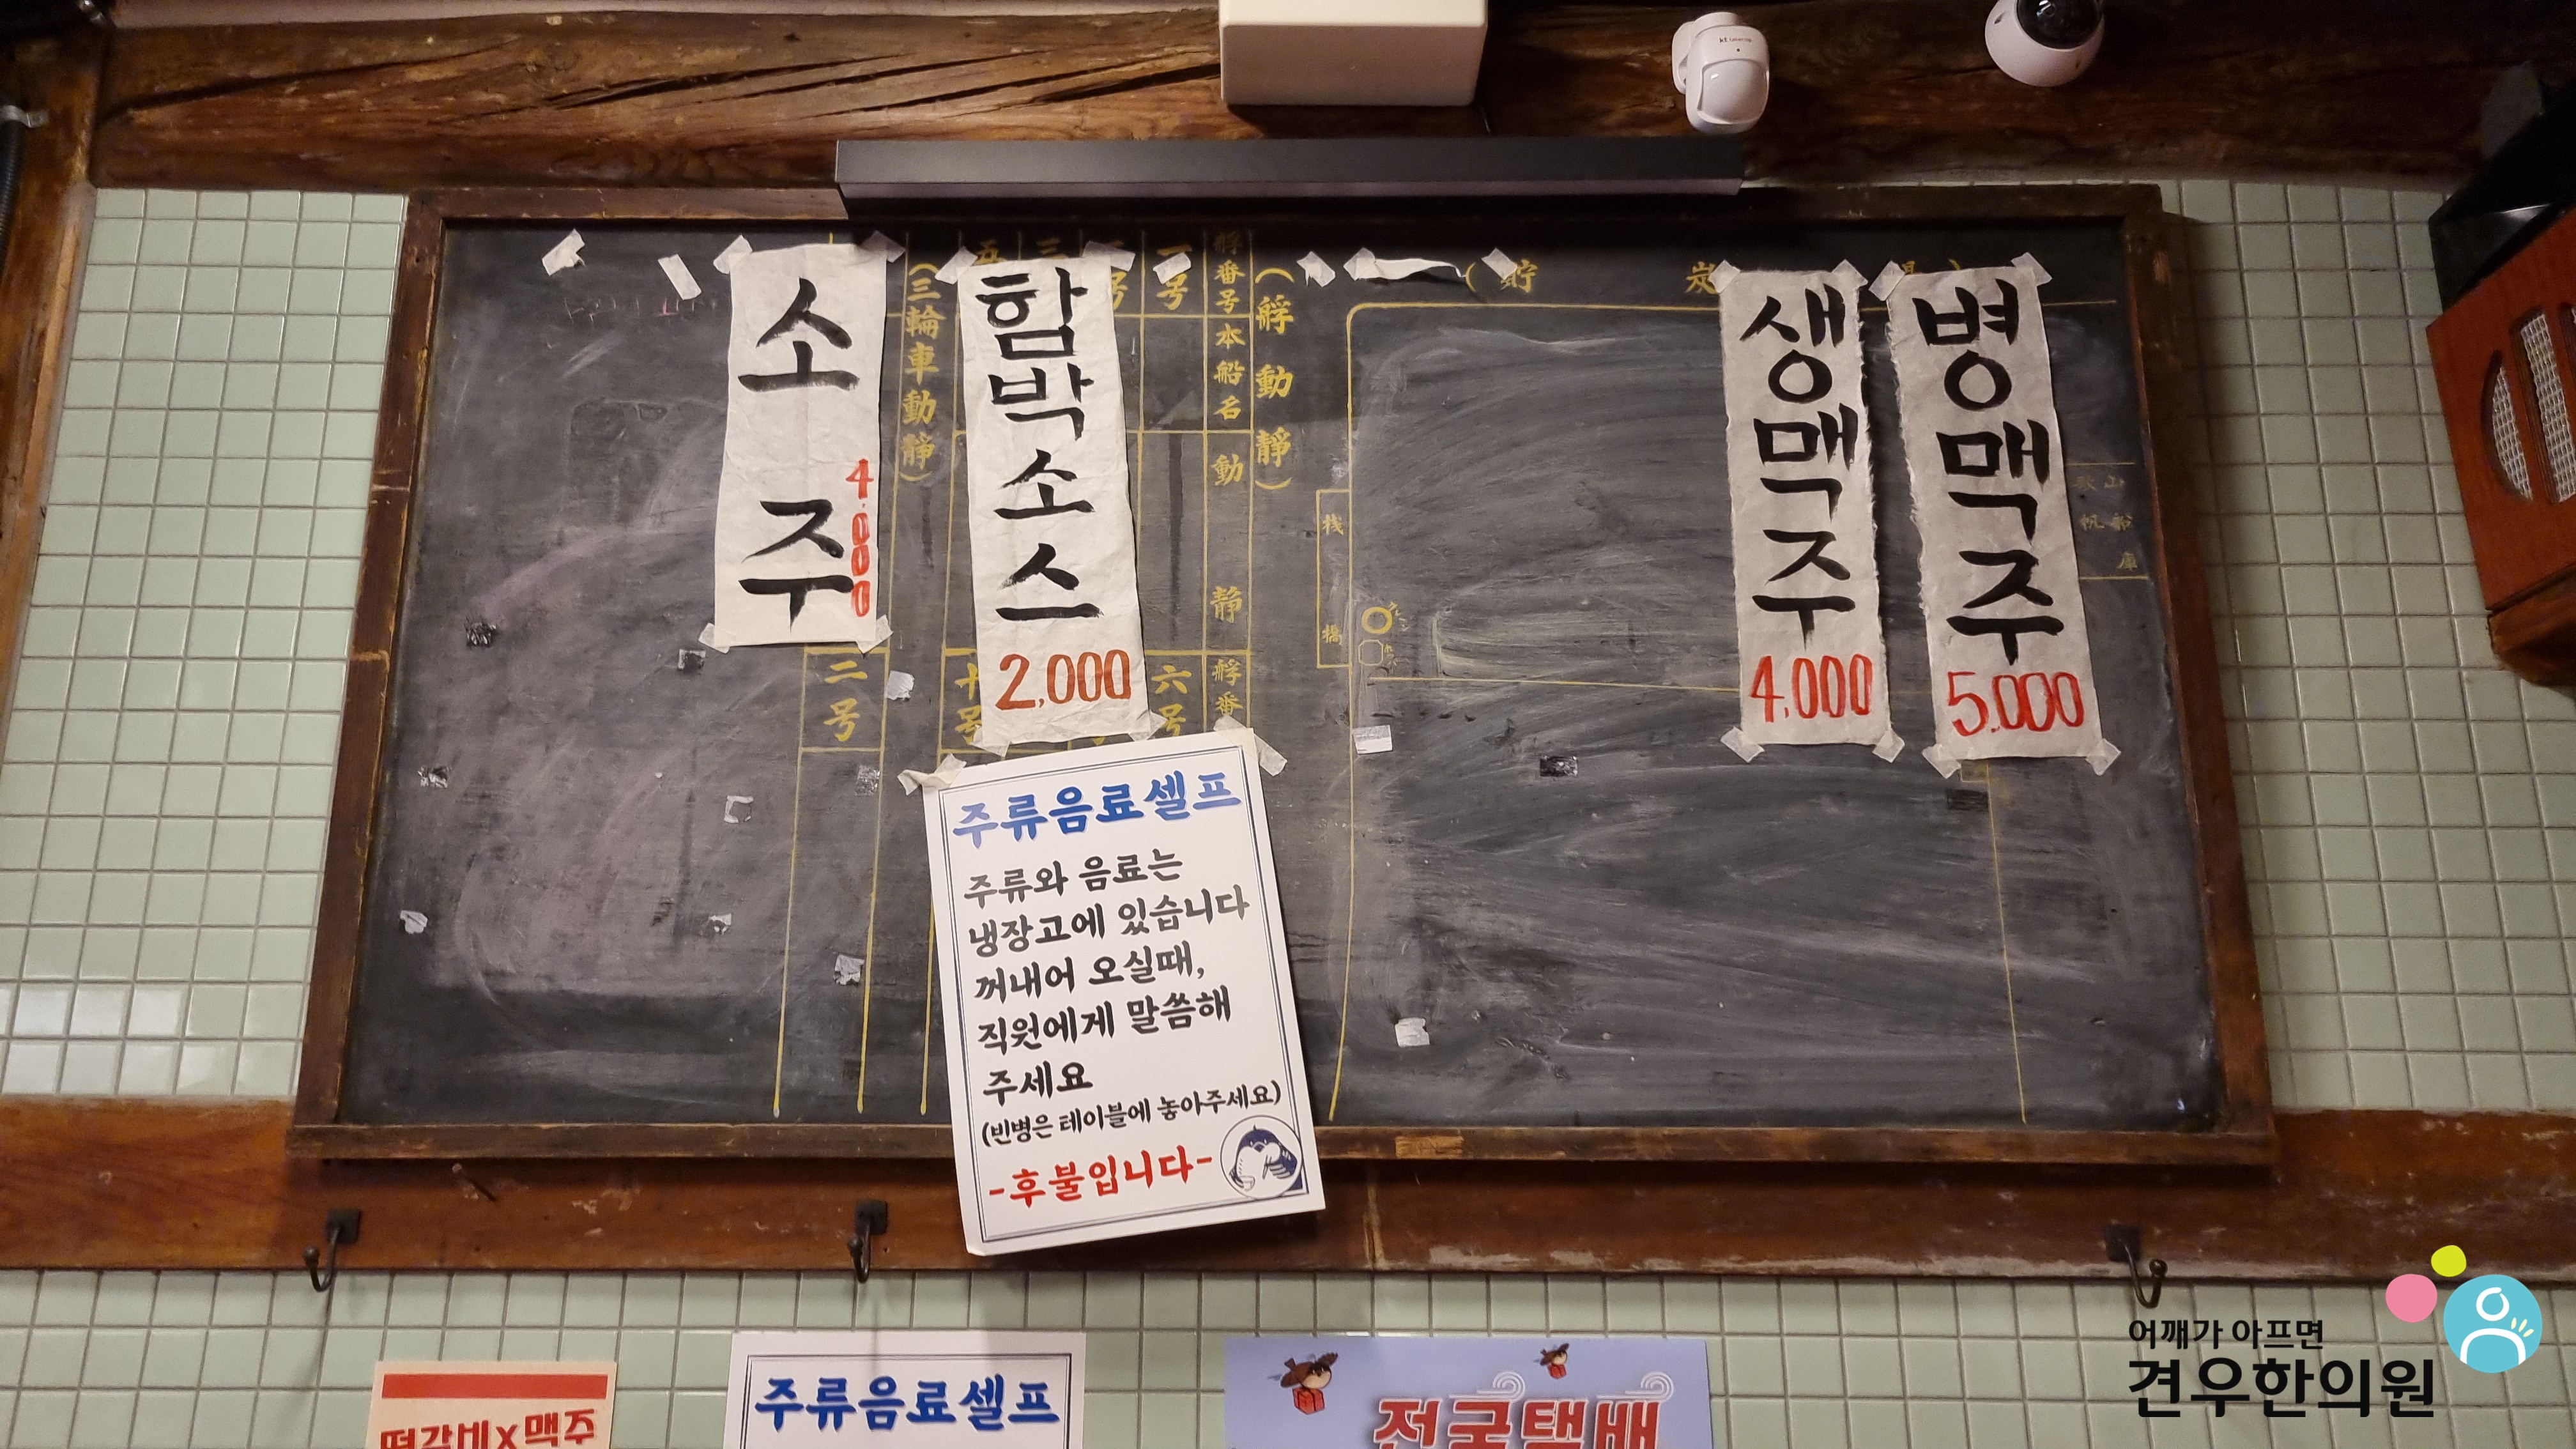 소주
4.000
함박소스
2,000
생맥주
4,000
병맥주
5.000
(三輪車動靜)
(艀動靜)
一号
艀番号
本船名
動
静
二号
六号
艀番
桟
橋
(貯
炭
山
帆船
庫
주류음료셀프
주류와 음료는
냉장고에 있습니다
꺼내어 오실때,
직원에게 말씀해
주세요
(빈병은 테이블에 놓아주세요)
-후불입니다-
떡갈비X맥주
주류음료셀프
전국택배
kt
어깨가 아프면
견우한의원